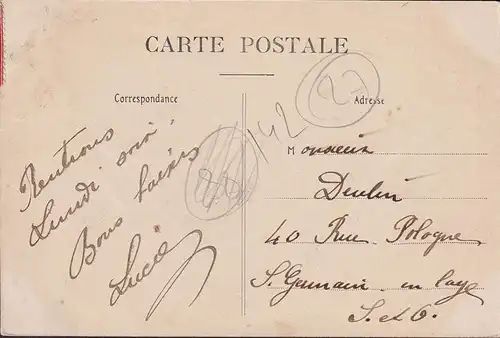 CARTE POSTALE
Correspondance
Adresse
Rentrons
Lundi soir
Bons baisers
Lucie
142
27
Monsieur
Deulin
40 Rue Pologne
S. Germain en laye
S. et O.